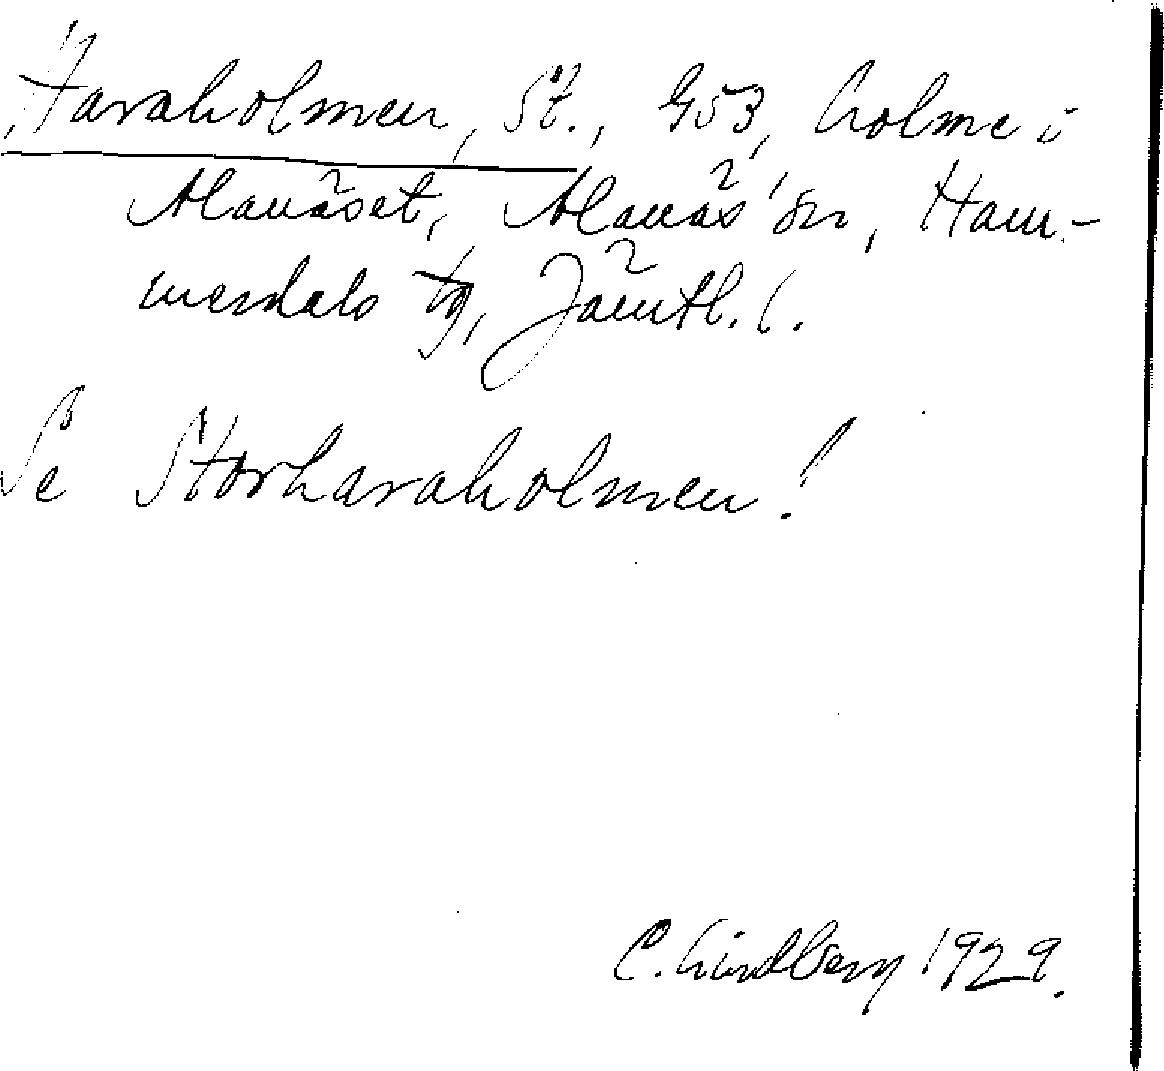 Haraholmen, St., G53, holme i
Alanäset, Alanäs sn, Ham-
merdals tg, Jämtl. l.
Se Storharaholmen!
C. Lindberg 1929.